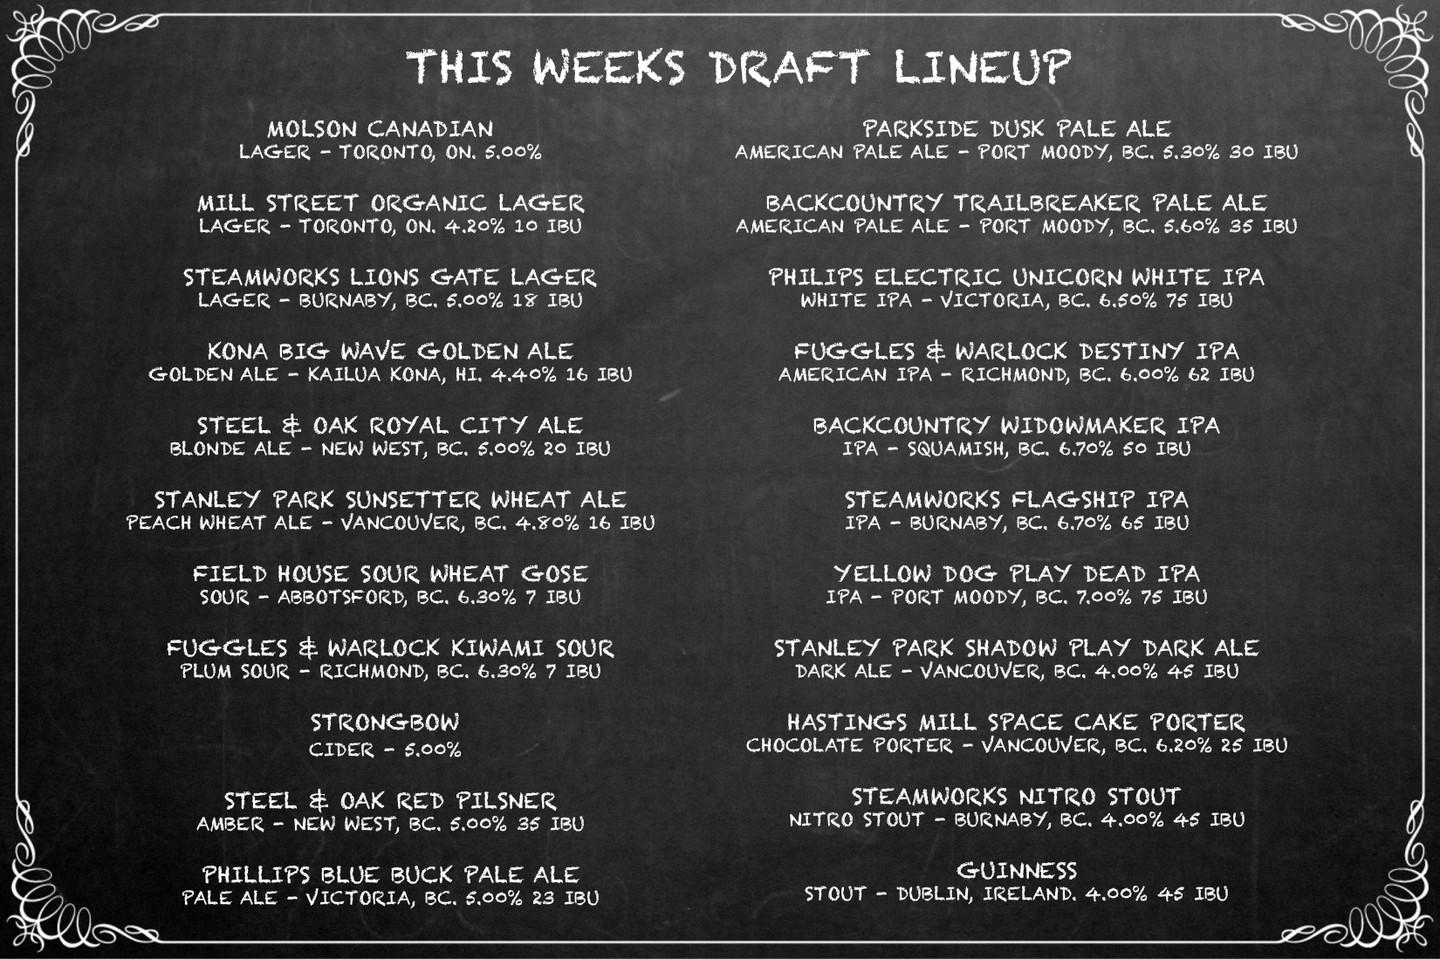 THIS WEEKS DRAFT LINEUP
MOLSON CANADIAN
LAGER - TORONTO, ON. 5.00%
MILL STREET ORGANIC LAGER
LAGER - TORONTO, ON. 4.20% 10 IBU
STEAMWORKS LIONS GATE LAGER
LAGER - BURNABY, BC. 5.00% 18 IBU
KONA BIG WAVE GOLDEN ALE
GOLDEN ALE - KAILUA KONA, HI. 4.40% 16 IBU
STEEL & OAK ROYAL CITY ALE
BLONDE ALE - NEW WEST, BC. 5.00% 20 IBU
STANLEY PARK SUNSETTER WHEAT ALE
PEACH WHEAT ALE - VANCOUVER, BC. 4.80% 16 IBU
FIELD HOUSE SOUR WHEAT GOSE
SOUR - ABBOTSFORD, BC. 6.30% 7 IBU
FUGGLES & WARLOCK KIWAMI SOUR
PLUM SOUR - RICHMOND, BC. 6.30% 7 IBU
STRONGBOW
CIDER - 5.00%
STEEL & OAK RED PILSNER
AMBER - NEW WEST, BC. 5.00% 35 IBU
PHILLIPS BLUE BUCK PALE ALE
PALE ALE - VICTORIA, BC. 5.00% 23 IBU
PARKSIDE DUSK PALE ALE
AMERICAN PALE ALE - PORT MOODY, BC. 5.30% 30 IBU
BACKCOUNTRY TRAILBREAKER PALE ALE
AMERICAN PALE ALE - PORT MOODY, BC. 5.60% 35 IBU
PHILIPS ELECTRIC UNICORN WHITE IPA
WHITE IPA - VICTORIA, BC. 6.50% 75 IBU
FUGGLES & WARLOCK DESTINY IPA
AMERICAN IPA - RICHMOND, BC. 6.00% 62 IBU
BACKCOUNTRY WIDOWMAKER IPA
IPA - SQUAMISH, BC. 6.70% 50 IBU
STEAMWORKS FLAGSHIP IPA
IPA - BURNABY, BC. 6.70% 65 IBU
YELLOW DOG PLAY DEAD IPA
IPA - PORT MOODY, BC. 7.00% 75 IBU
STANLEY PARK SHADOW PLAY DARK ALE
DARK ALE - VANCOUVER, BC. 4.00% 45 IBU
HASTINGS MILL SPACE CAKE PORTER
CHOCOLATE PORTER - VANCOUVER, BC. 6.20% 25 IBU
STEAMWORKS NITRO STOUT
NITRO STOUT - BURNABY, BC. 4.00% 45 IBU
GUINNESS
STOUT - DUBLIN, IRELAND. 4.00% 45 IBU